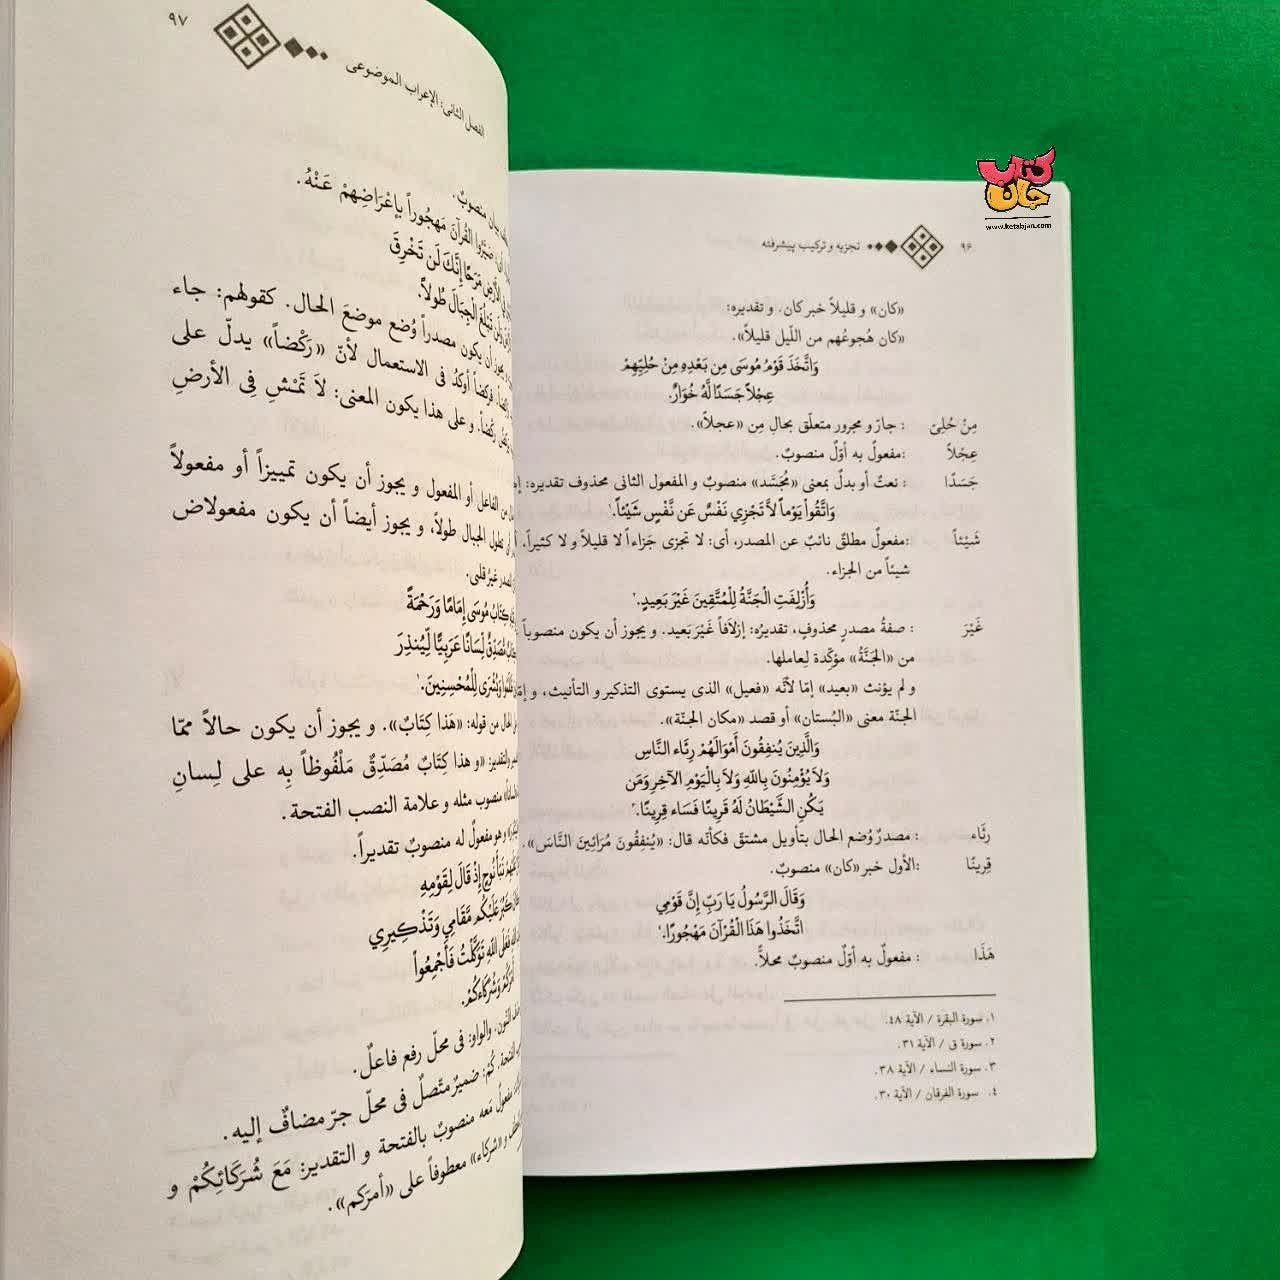 کتاب
جان
www.ketabjan.com
۹۶
تجزیه و ترکیب پیشرفته
«کان» و قلیلاً خبر کان. و تقدیره:
«کان هُجوعُهم من اللّیل قلیلاً».
وَاتَّخَذَ قَوْمُ مُوسَى مِن بَعْدِهِ مِنْ حُلِيِّهِمْ
عِجْلاً جَسَدًا لَّهُ خُوَارٌ.
مِنْ حُلِیّ : جارّ و مجرور متعلّق بحالِ مِن «عجلاً».
عِجْلاً : مفعولٌ به أوّلٌ منصوبٌ.
جَسَدًا : نعتٌ أو بدلٌ بمعنی «مُجَسَّد» منصوبٌ و المفعول الثانی محذوف تقدیره:
وَاتَّقُواْ يَوْماً لاَّ تَجْزِي نَفْسٌ عَن نَّفْسٍ شَيْئاً.۱
شَیْئاً : مفعولٌ مطلقٌ نائبٌ عن المصدر، أی: لا تجزی جَزاءاً لا قلیلاً و لا کثیراً.
شیئاً من الجزاء.
وَأُزْلِفَتِ الْجَنَّةُ لِلْمُتَّقِينَ غَيْرَ بَعِيدٍ.۲
غَیْرَ : صفةُ مصدرٍ محذوفٍ، تقدیرُه: إزلافاً غَیْرَ بَعید. و یجوز أن یکون منصوباً
من «الجَنَّةُ» مؤکِّدة لِعاملها.
و لم یؤنث «بعید» إمّا لأنّه «فعیل» الذی یستوی التذکیر و التأنیث، و
الجنّة معنی «البُستان» أو قصد «مکان الجنّة».
وَالَّذِينَ يُنفِقُونَ أَمْوَالَهُمْ رِئَاء النَّاسِ
وَلاَ يُؤْمِنُونَ بِاللّهِ وَلاَ بِالْيَوْمِ الآخِرِ وَمَن
يَكُنِ الشَّيْطَانُ لَهُ قَرِينًا فَسَاء قِرِينًا.۳
رِئَاء : مصدرٌ وُضع الحال بتأویل مشتقّ فکأنّه قال: «یُنفِقُونَ مُرَائِینَ النَّاسَ».
قِرِینًا : الأول خبر «کان» منصوبٌ.
وَقَالَ الرَّسُولُ يَا رَبِّ إِنَّ قَوْمِي
اتَّخَذُوا هَذَا الْقُرْآنَ مَهْجُورًا.۴
هَذَا : مفعولٌ به أوّلٌ منصوبٌ محلاً.
۱. سورة البقرة / الآیة ۴۸.
۲. سورة ق / الآیة ۳۱.
۳. سورة النساء / الآیة ۳۸.
۴. سورة الفرقان / الآیة ۳۰.
الفصل الثانی: الإعراب الموضوعی
۹۷
منصوبٌ.
القُرآنَ مَهجُوراً بإعْرَاضِهِمْ عَنْهُ.
الأَرْضِ مَرَحًا إِنَّكَ لَن تَخْرِقَ
وَلَن تَبْلُغَ الْجِبَالَ طُولاً.
یجوز أن یکون مصدراً وُضع موضعَ الحال. کقولهم: جاء
فرکضاً أوکدُ فی الاستعمال لأنّ «رَکْضاً» یدلّ علی
رکْضاً. و علی هذا یکون المعنی: لاَ تَمْشِ فِی الأرضِ
من الفاعل أو المفعول و یجوز أن یکون تمییزاً أو مفعولاً
طول الجبال طولاً، و یجوز أیضاً أن یکون مفعولاض
المصدر غیرُ قلی.
كِتَابُ مُوسَى إِمَامًا وَرَحْمَةً
مُّصَدِّقٌ لِّسَانًا عَرَبِيًّا لِّيُنذِرَ
ظَلَمُوا وَبُشْرَى لِلْمُحْسِنِينَ.
الحال من قوله: «هَذا کِتَابٌ». و یجوز أن یکون حالاً ممّا
والتقدیر: «و هذا کِتَابٌ مُصَدِّقٌ مَلْفُوظاً بِه علی لِسانِ
منصوب مثله و علامة النصب الفتحة.
و هو مفعولٌ له منصوبٌ تقدیراً.
نَبَأَ نُوحٍ إِذْ قَالَ لِقَوْمِهِ
كَبُرَ عَلَيْكُم مَّقَامِي وَتَذْكِيرِي
فَعَلَى اللّهِ تَوَكَّلْتُ فَأَجْمِعُواْ
أَمْرَكُمْ وَشُرَكَاءكُمْ.
النون. والواو: فی محلّ رفع فاعلٌ.
الفتحة. کُمْ: ضمیرٌ متّصلٌ فی محلّ جرّ مضافٌ إلیه.
مفعولٌ مَعه منصوبٌ بالفتحة و التقدیر: مَعَ شُرَکَائِکُمْ و
و «شرکاء» معطوفاً علی «أمرَکم».